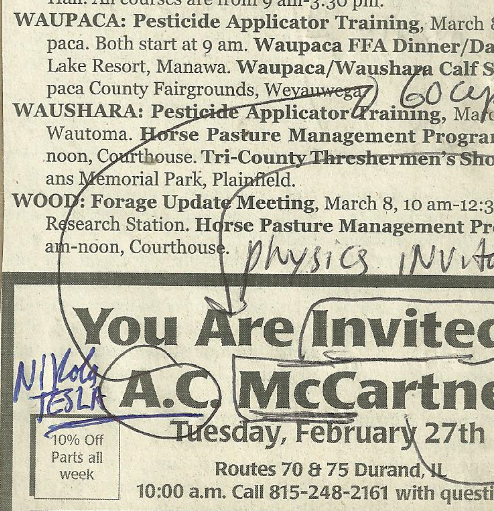 Hall. All courses are from 9 am-3:30 pm.
WAUPACA: Pesticide Applicator Training, March 8
paca. Both start at 9 am. Waupaca FFA Dinner/Da
Lake Resort, Manawa. Waupaca/Waushara Calf S
paca County Fairgrounds, Weyauwega.
60 cy
WAUSHARA: Pesticide Applicator Training, Marc
Wautoma. Horse Pasture Management Progra
noon, Courthouse. Tri-County Threshermen's Sho
ans Memorial Park, Plainfield.
WOOD: Forage Update Meeting, March 8, 10 am-12:3
Research Station. Horse Pasture Management Pr
am-noon, Courthouse.
PHYSICS INVITA
You Are Invited
NIKOLA
TESLA
A.C. McCartne
10% Off
Parts all
week
Tuesday, February 27th
Routes 70 & 75 Durand, IL
10:00 a.m. Call 815-248-2161 with questi